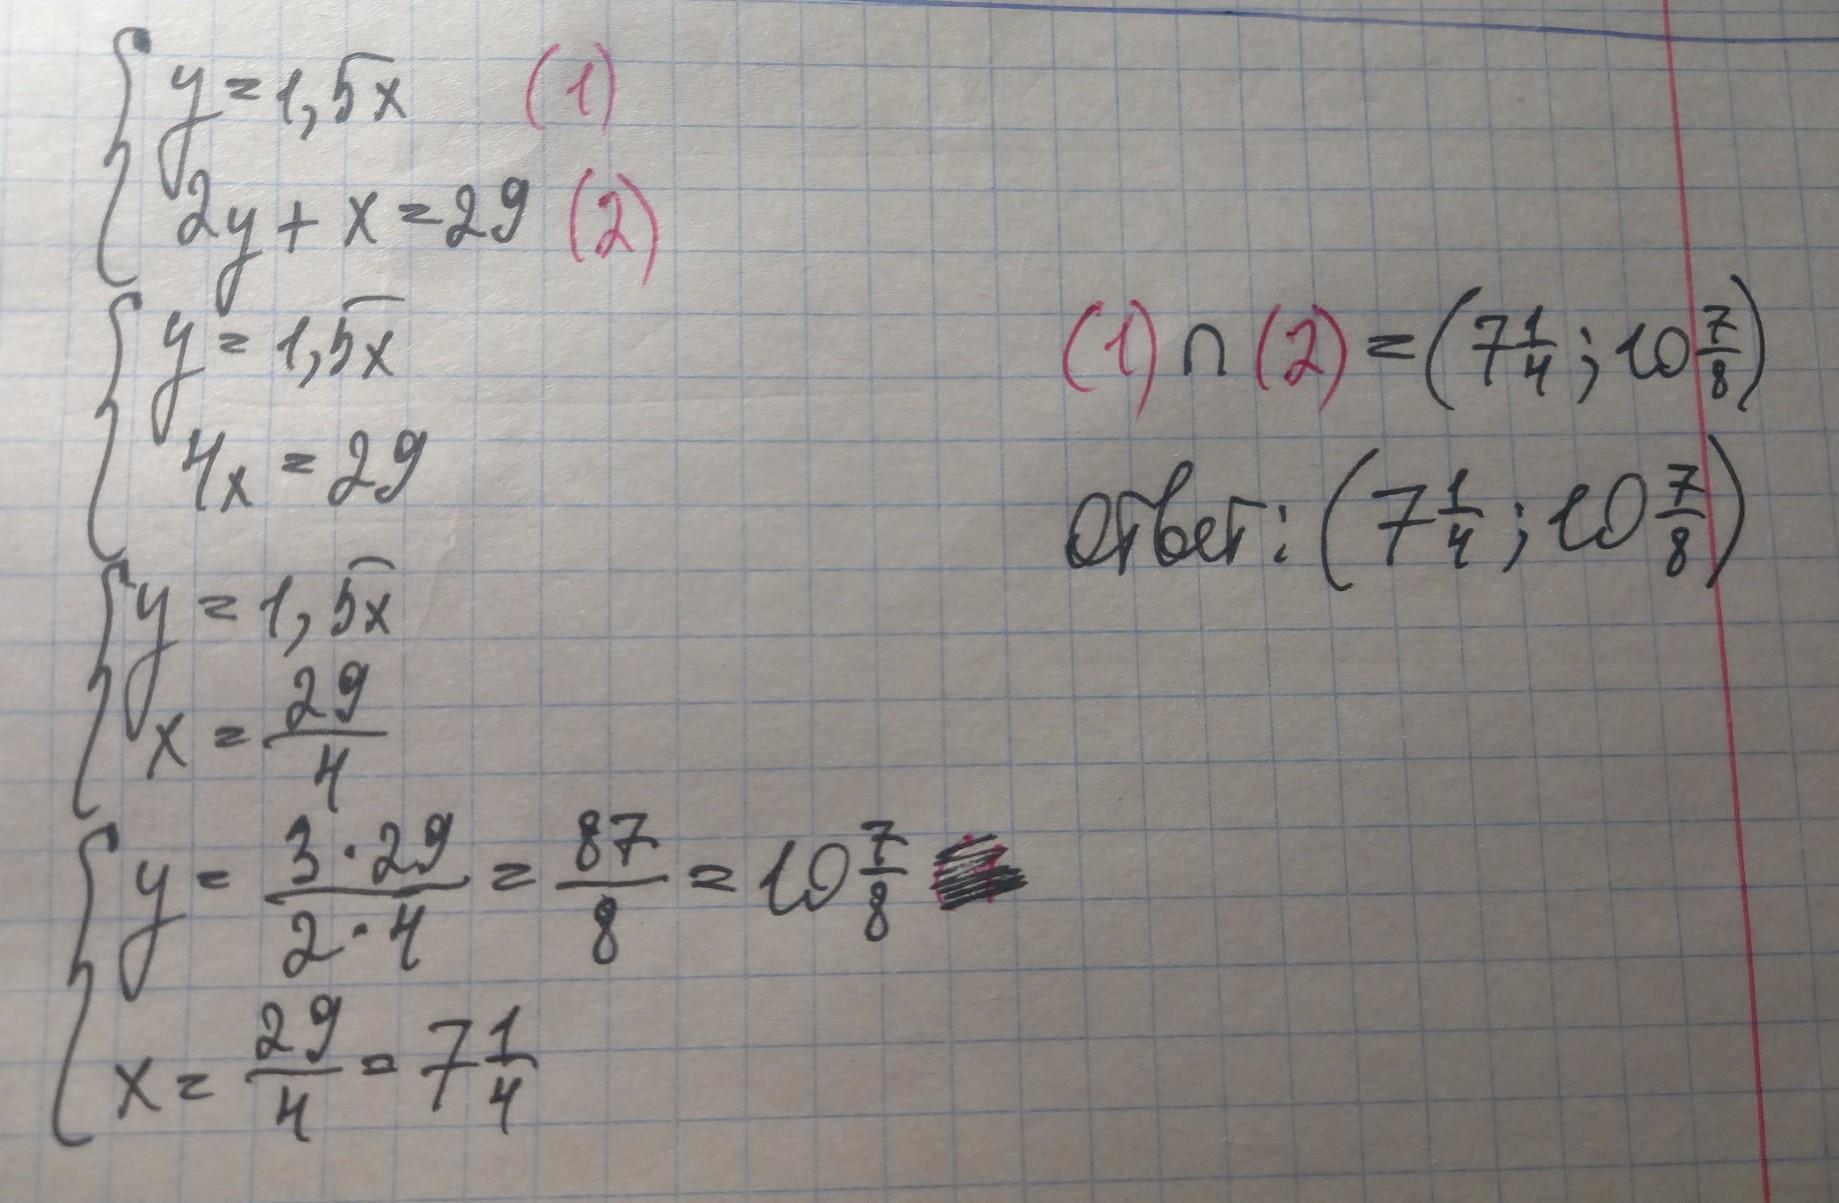 y = 1,5x (1)
2y + x = 29 (2)
y = 1,5x
4x = 29
y = 1,5x
x = 29/4
y = 3·29/2·4 = 87/8 = 10 7/8
x = 29/4 = 7 1/4
(1) ∩ (2) = (7 1/4 ; 10 7/8)
Ответ: (7 1/4 ; 10 7/8)